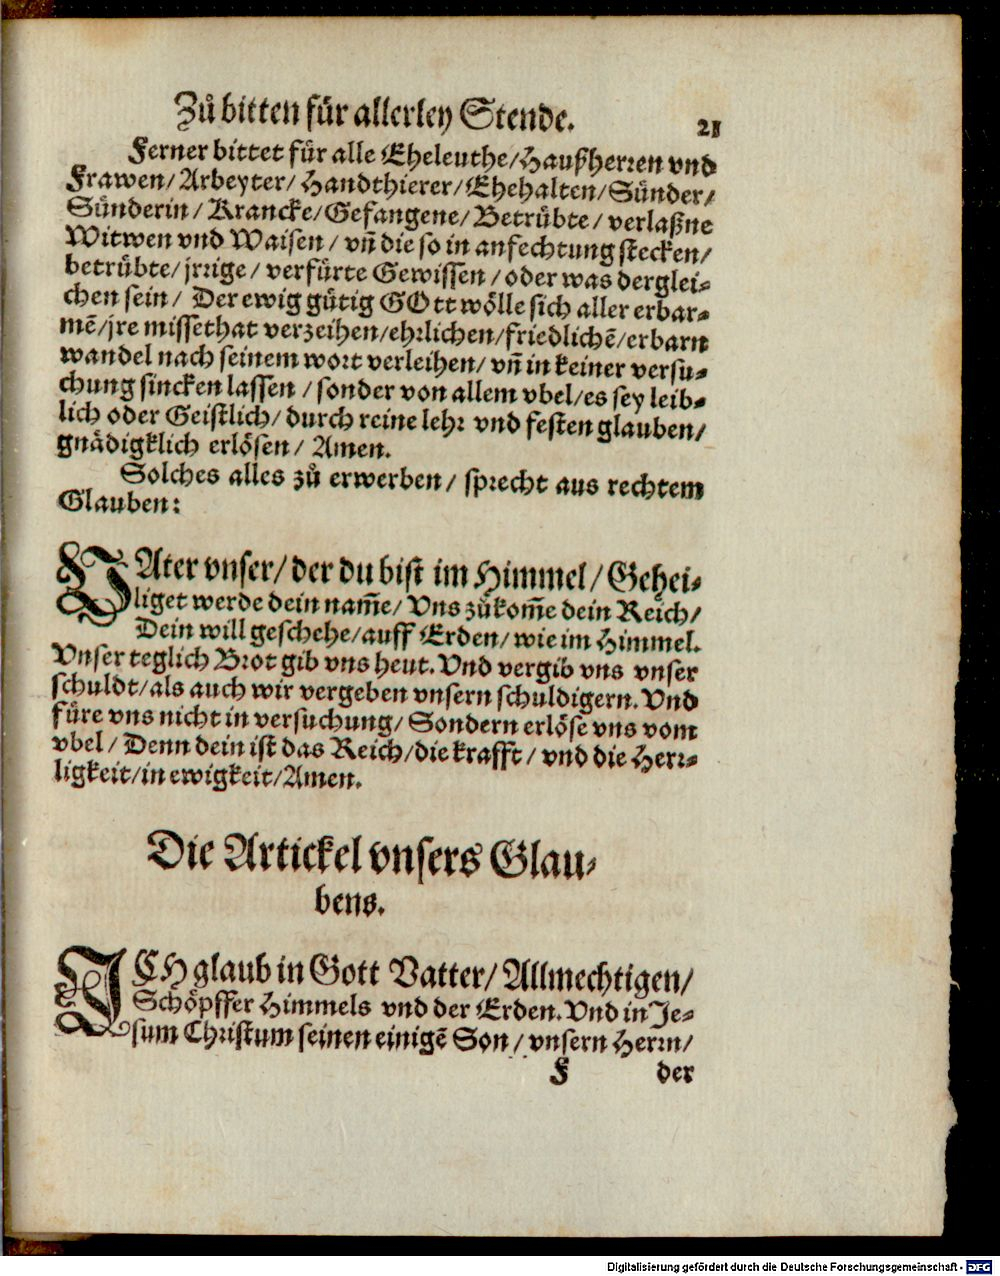 Zů bitten für allerley Stende.
21
Ferner bittet für alle Eheleuthe/Haußherren vnd
Frawen/Arbeyter/Handthierer/Ehehalten/Sünder/
Sünderin/Krancke/Gefangene/Betrübte/verlaßne
Witwen vnd Waisen/vn̄ die so in anfechtung stecken/
betrübte/jrrige/verfürte Gewissen/oder was derglei⸗
chen sein/Der ewig gütig GOtt wölle sich aller erbar⸗
mē/jre missethat verzeihen/ehrlichen/friedlichē/erbarn
wandel nach seinem wort verleihen/vn̄ in keiner versu⸗
chung sincken lassen/sonder von allem vbel/es sey leib⸗
lich oder Geistlich/durch reine lehr vnd festen glauben/
gnädigklich erlösen/Amen.
Solches alles zů erwerben/sprecht aus rechtem
Glauben:
VAter vnser/der du bist im Himmel/Gehei⸗
liget werde dein nam̄e/Vns zůkom̄e dein Reich/
Dein will geschehe/auff Erden/wie im Himmel.
Vnser teglich Brot gib vns heut. Vnd vergib vns vnser
schuldt/als auch wir vergeben vnsern schuldigern. Vnd
füre vns nicht in versuchung/Sondern erlöse vns vom
vbel/Denn dein ist das Reich/die krafft/vnd die Herr⸗
ligkeit/in ewigkeit/Amen.
Die Artickel vnsers Glau⸗
bens.
ICH glaub in Gott Vatter/Allmechtigen/
Schöpffer Himmels vnd der Erden. Vnd in Je⸗
sum Christum seinen einigē Son/vnsern Herrn/
F der
Digitalisierung gefördert durch die Deutsche Forschungsgemeinschaft - DFG